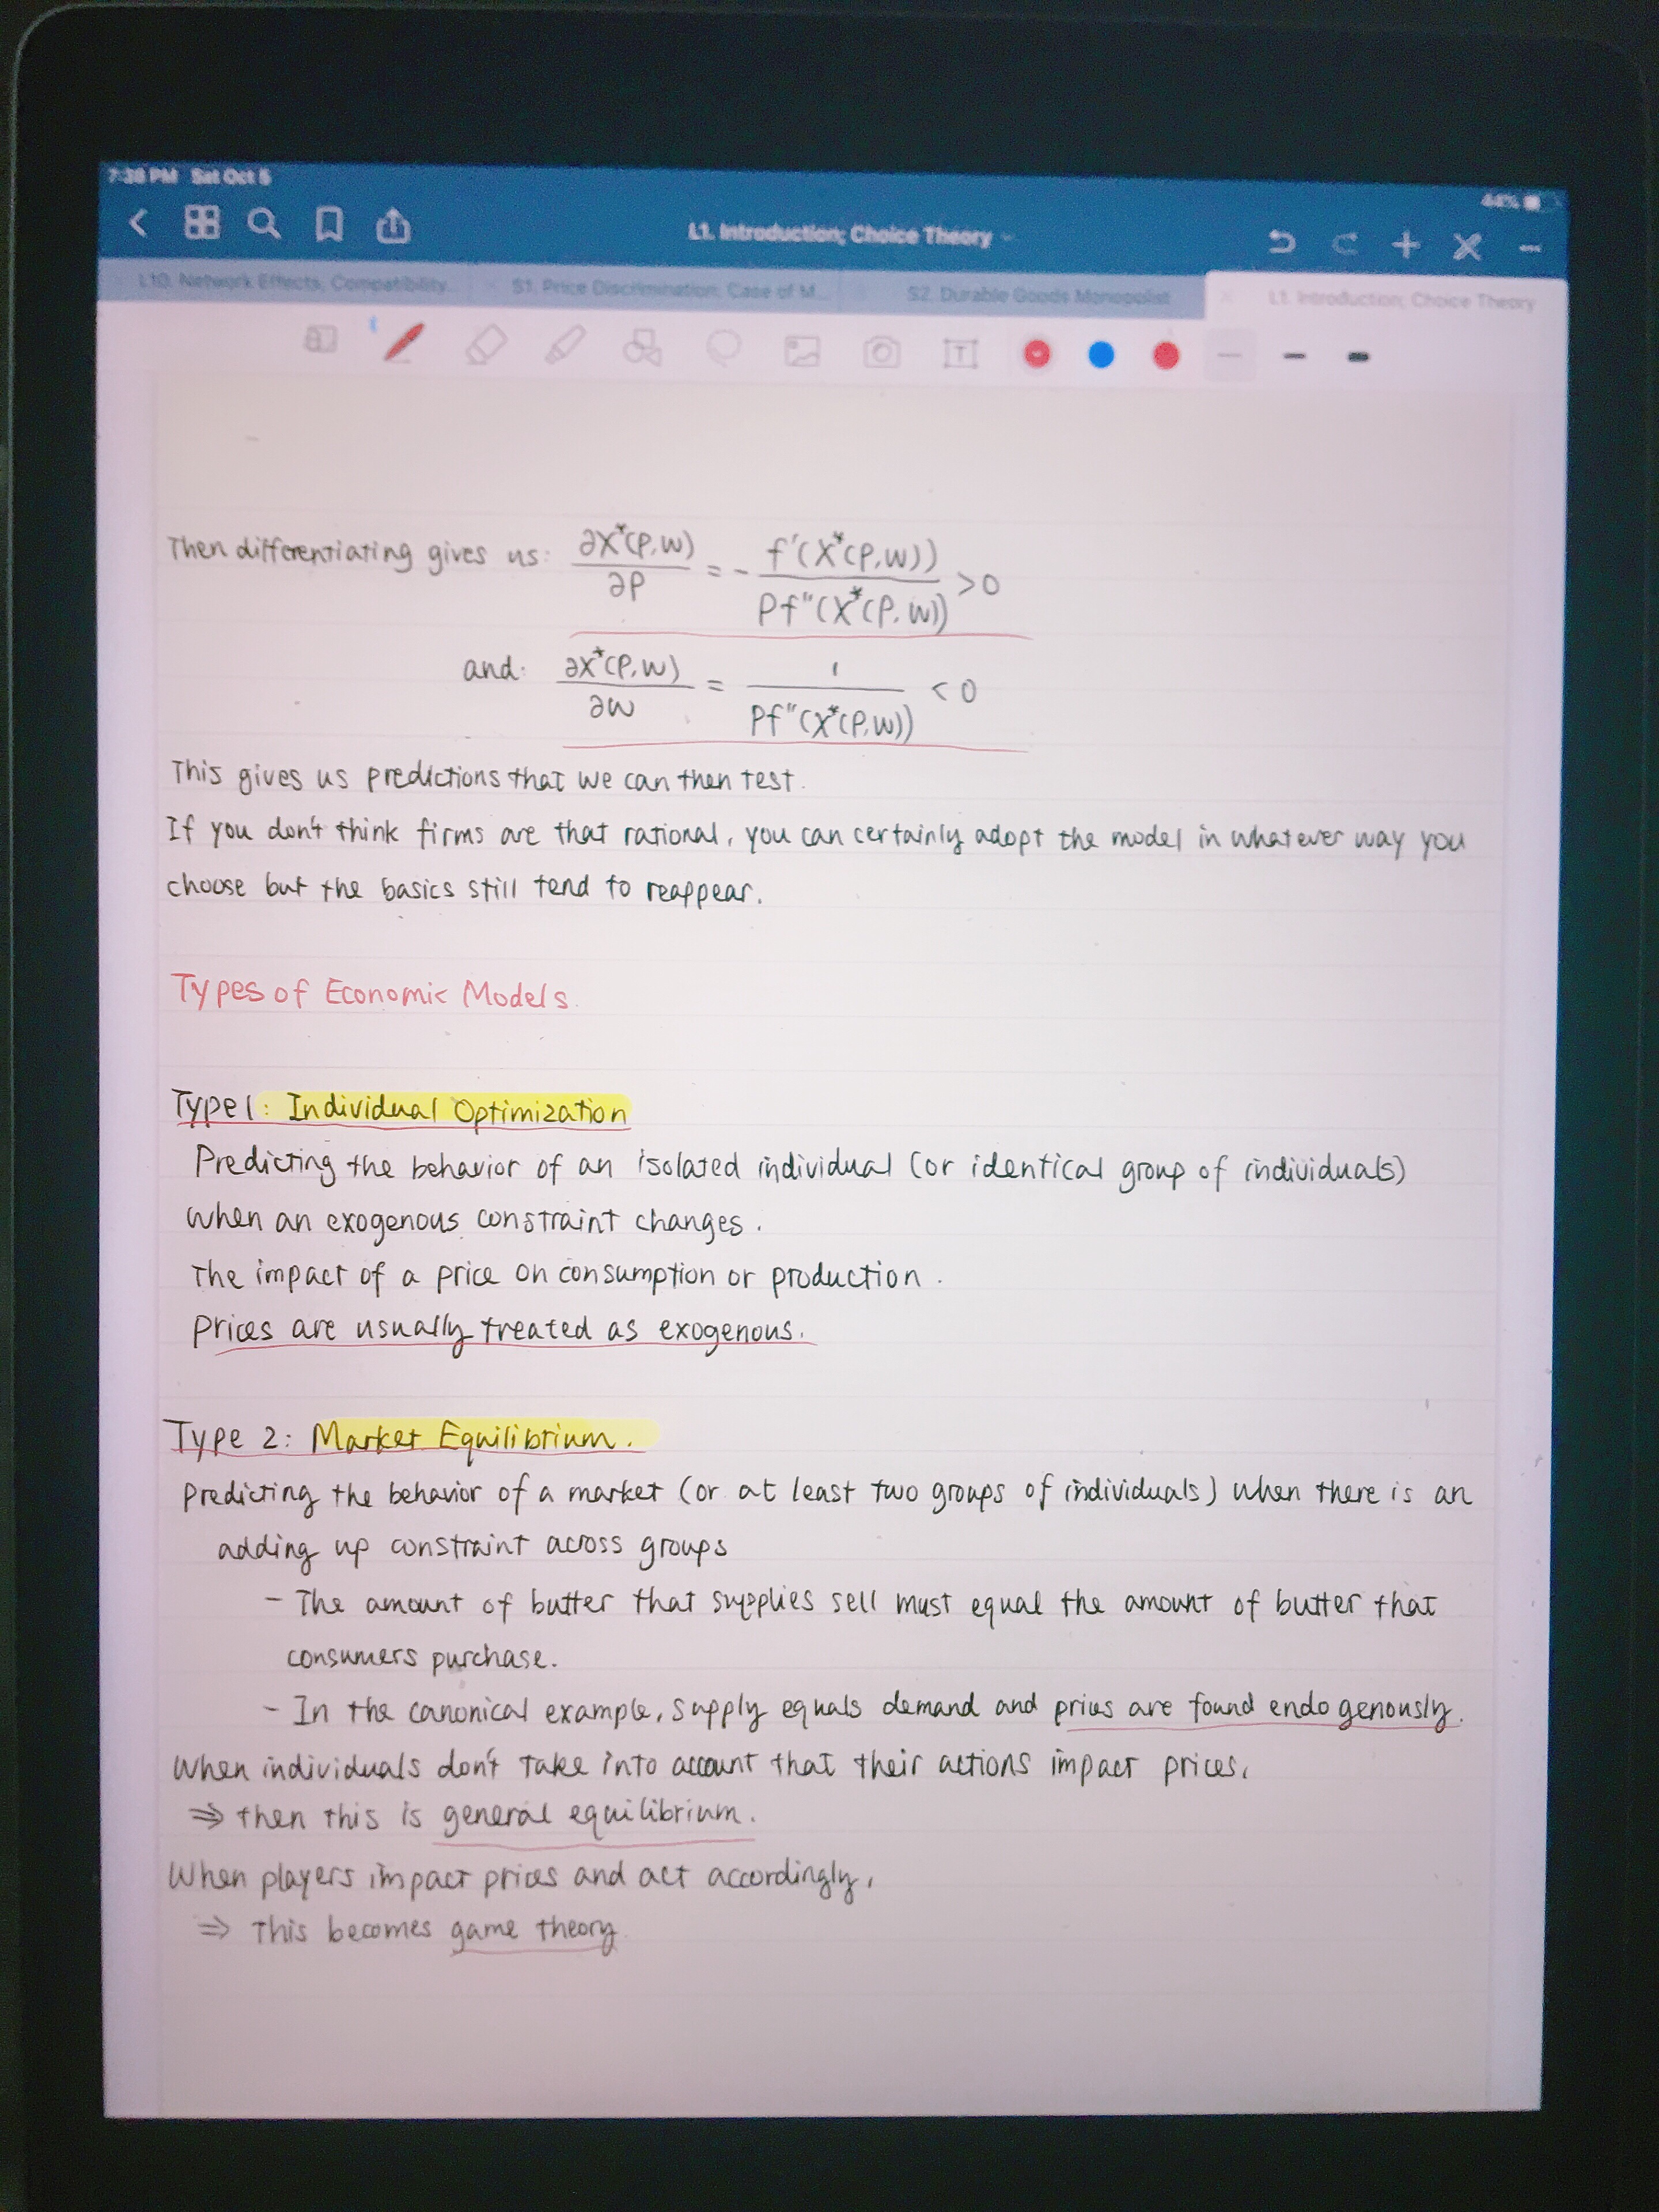 7:38 PM Sat Oct 5
44%
L1. Introduction; Choice Theory
L10. Network Effects, Compatibility... S1. Price Discrimination; Case of M... S2. Durable Goods Monopolist L1. Introduction; Choice Theory
Then differentiating gives us: ∂X*(P,W)/∂P = - f'(X*(P,W))/Pf''(X*(P,W)) >0
and: ∂X*(P,W)/∂W = 1/Pf''(X*(P,W)) <0
This gives us predictions that we can then test.
If you don't think firms are that rational, you can certainly adopt the model in whatever way you
choose but the basics still tend to reappear.
Types of Economic Models.
Type 1: Individual Optimization
Predicting the behavior of an isolated individual (or identical group of individuals)
when an exogenous constraint changes.
The impact of a price on consumption or production.
Prices are usually treated as exogenous.
Type 2: Market Equilibrium.
Predicting the behavior of a market (or at least two groups of individuals) when there is an
adding up constraint across groups
- The amount of butter that supplies sell must equal the amount of butter that
consumers purchase.
- In the canonical example, supply equals demand and prices are found endogenously.
When individuals don't take into account that their actions impact prices,
⇒ then this is general equilibrium.
When players impact prices and act accordingly,
⇒ This becomes game theory